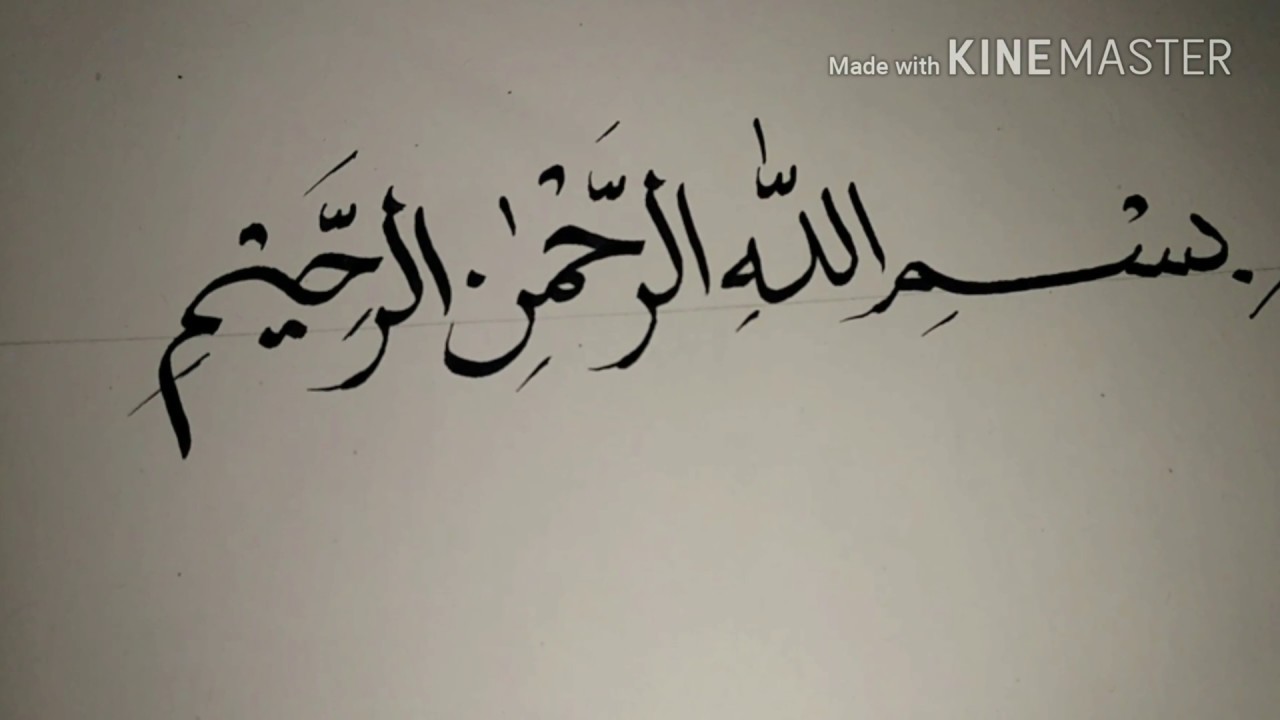 Made with KINEMASTER
بِسْمِ اللّٰهِ الرَّحْمٰنِ الرَّحِيْمِ